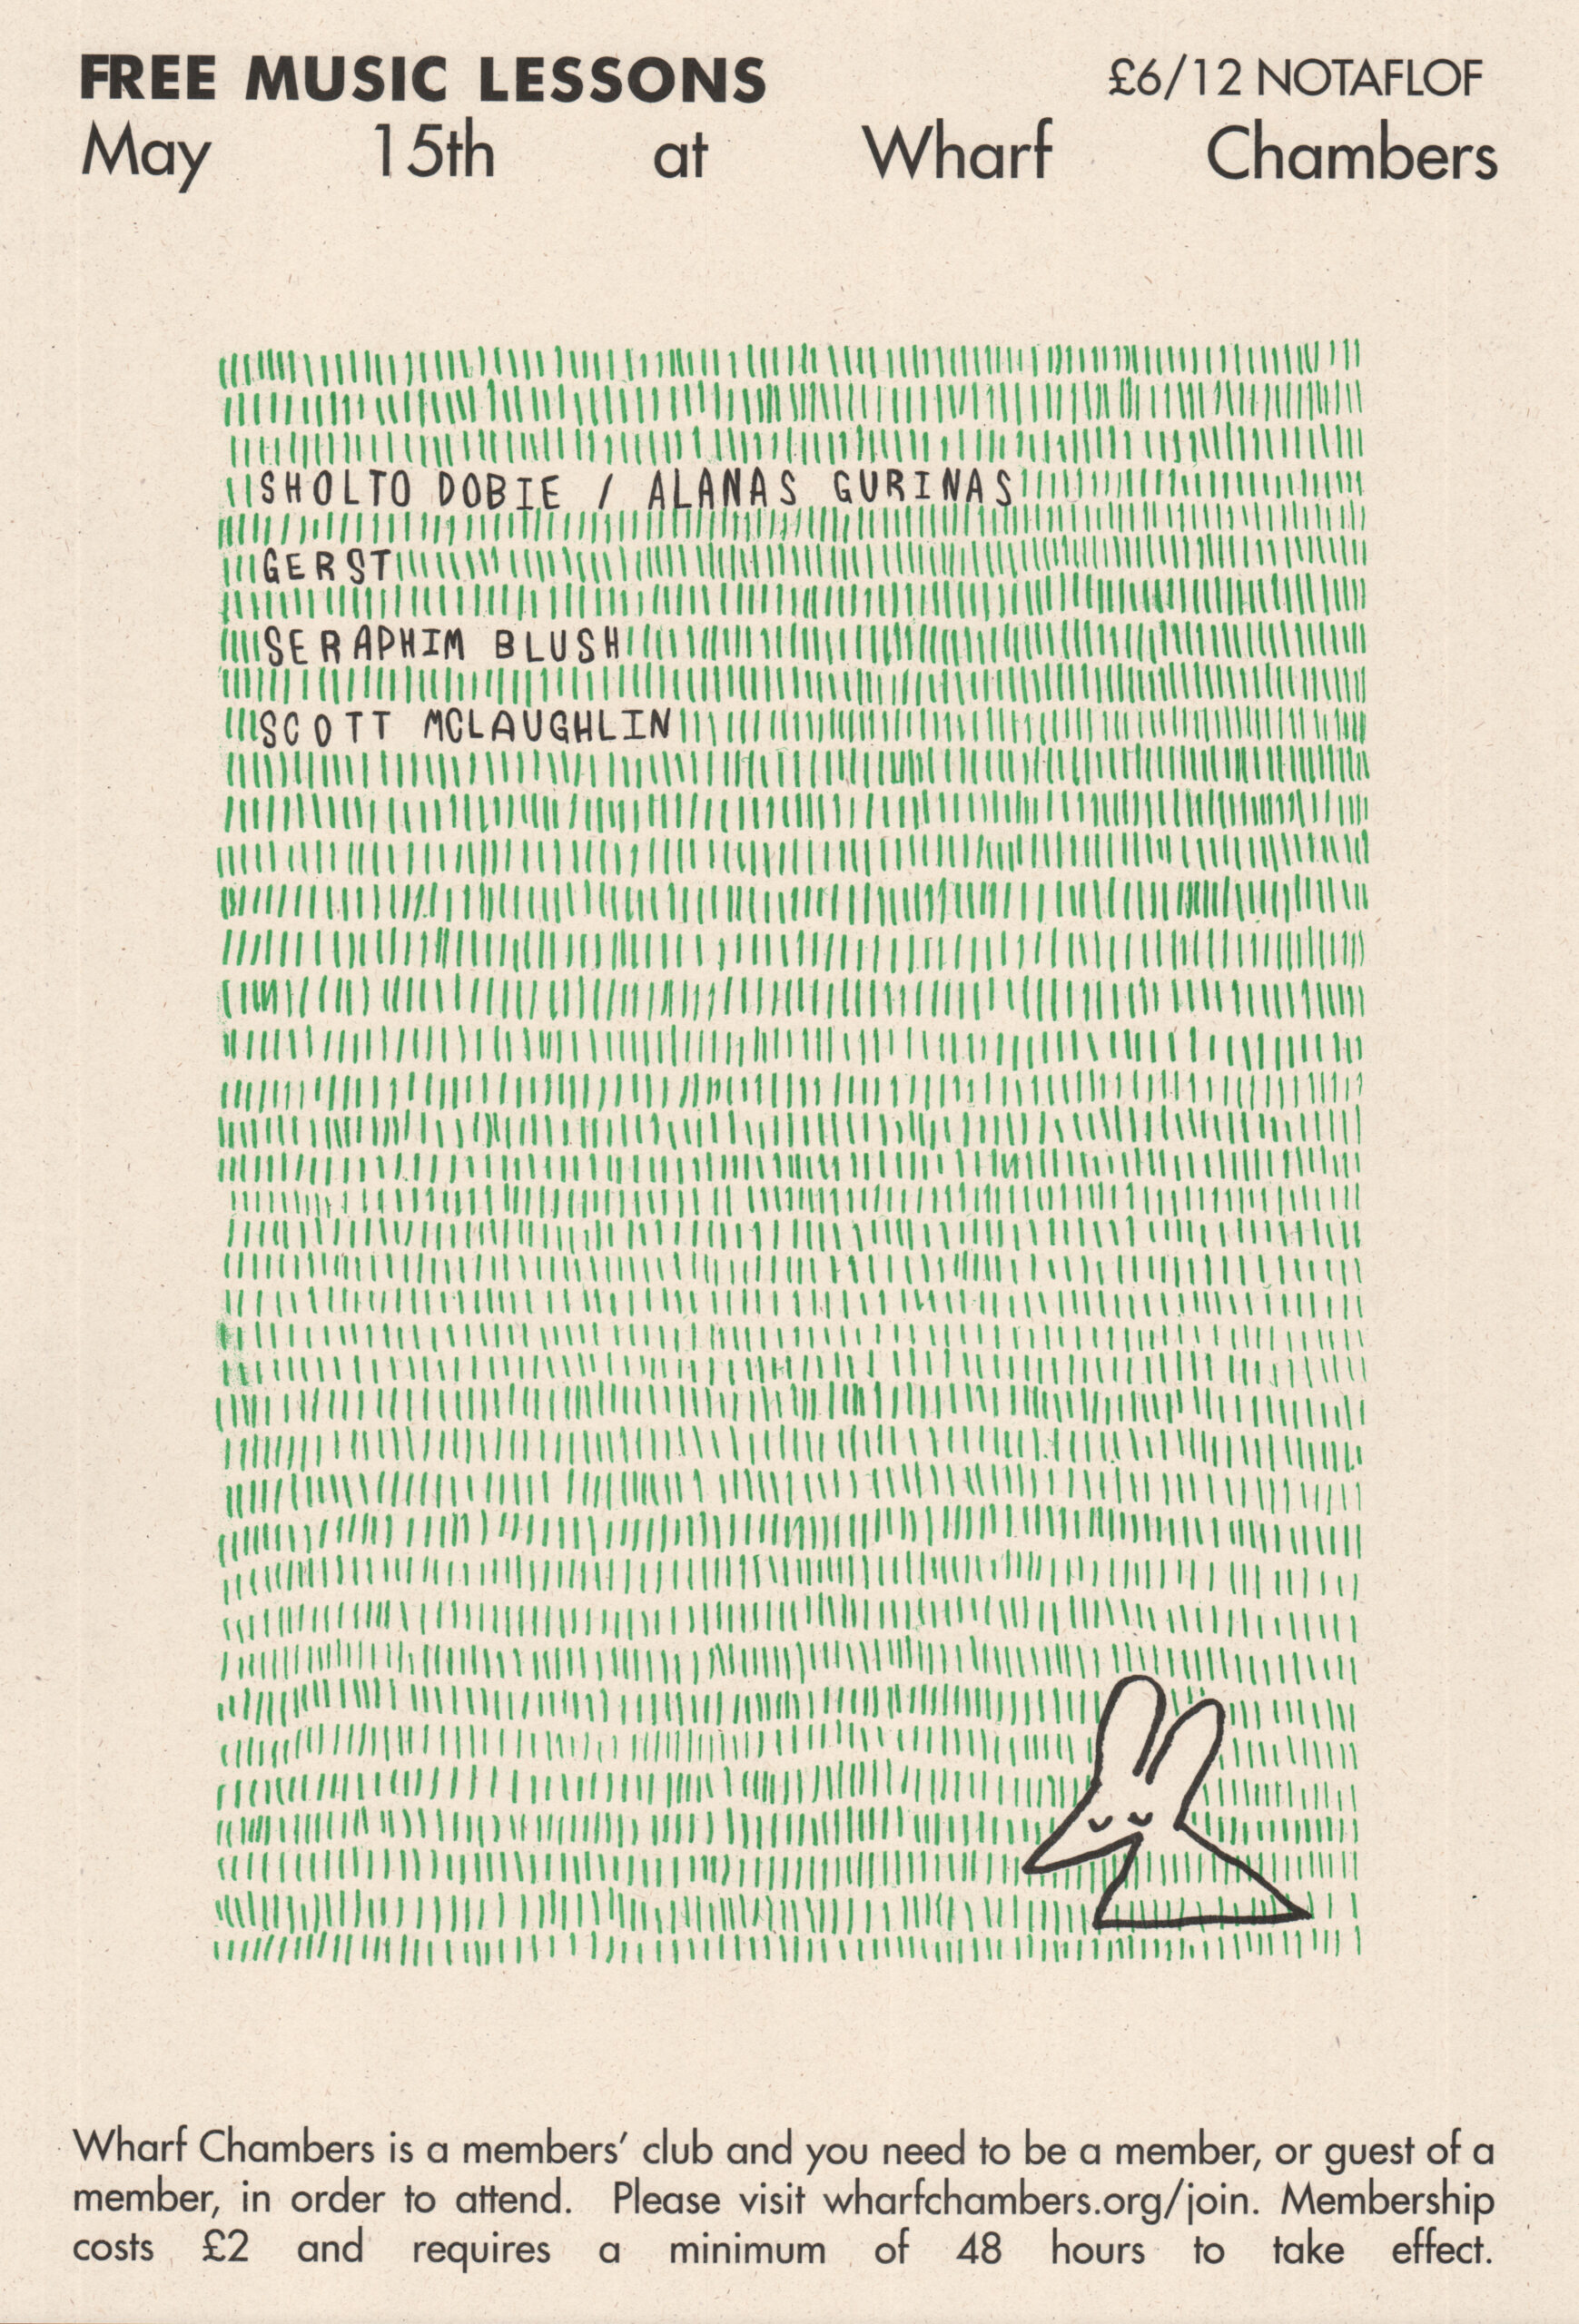 FREE MUSIC LESSONS £6/12 NOTAFLOF
May 15th at Wharf Chambers
SHOLTO DOBIE / ALANAS GURINAS
GERST
SERAPHIM BLUSH
SCOTT MCLAUGHLIN
Wharf Chambers is a members' club and you need to be a member, or guest of a
member, in order to attend. Please visit wharfchambers.org/join. Membership
costs £2 and requires a minimum of 48 hours to take effect.